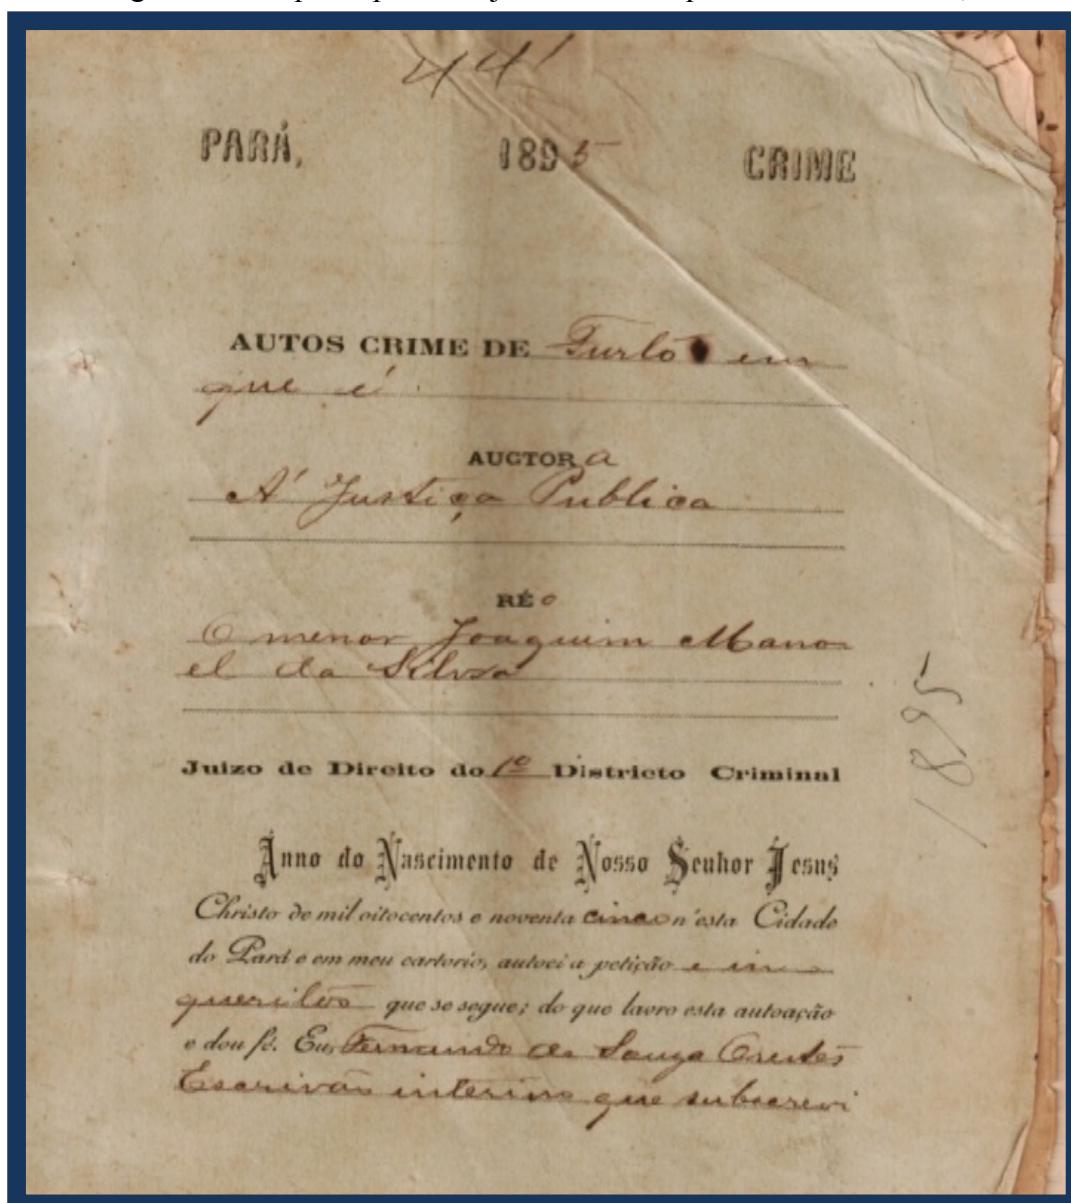 44
PARÁ, 1895 CRIME
AUTOS CRIME DE Furto em
que é
AUCTORa
A' Justiça Publica
RÉo
O menor Joaquim Mano
el da Silva
Juizo de Direito do 1º Districto Criminal
Anno do Nascimento de Nosso Senhor Jesus
Christo de mil oitocentos e noventa cinco n'esta Cidade
do Pará e em meu cartorio, autoei a petição e in
querito que se segue; do que lavro esta autoação
e dou fé. Eu, Fernando de Souza
Escrivão interino que subscrevi
1895